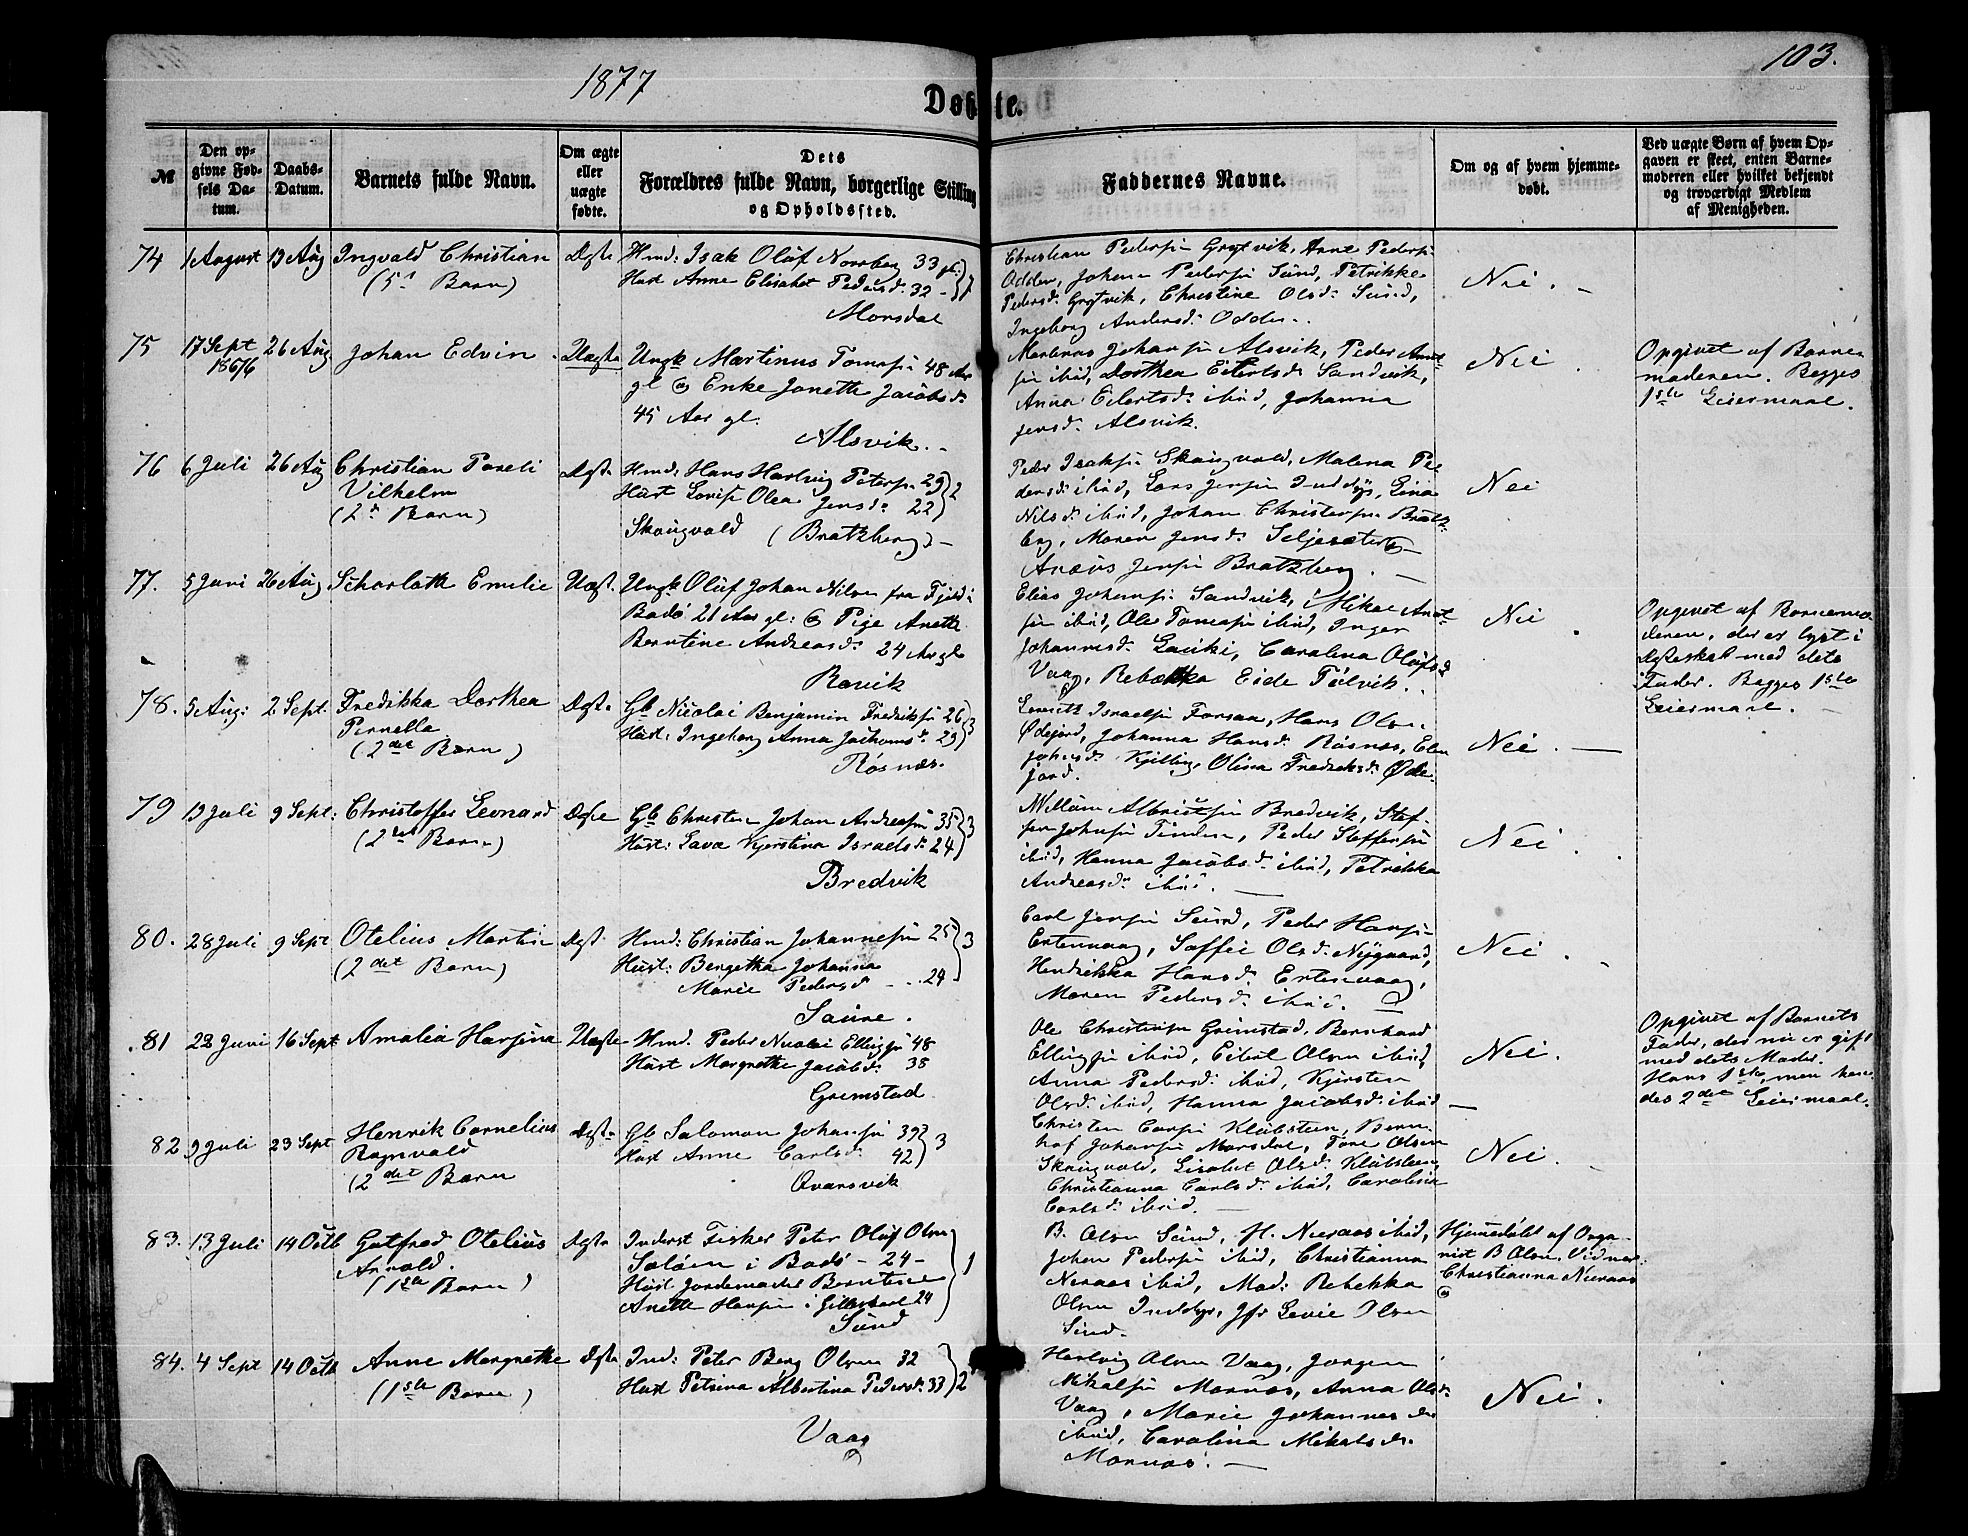 1877
103.
Døbte.
№
Den opgivne Fødsels Datum.
Daabs-Datum.
Barnets fulde Navn.
Om ægte eller uægte fødte.
Dets Forældres fulde Navn, borgerlige Stilling og Opholdssted.
Faddernes Navne.
Om og af hvem hjemmedøbt.
Ved uægte Børn af hvem Opgaven er skeet, enten Barnemoderen eller hvilket bekjendt og troværdigt Medlem af Menigheden.
74 1 August 19 Aug Ingvald Christian Ægte Hmd: Isak Oluf Norrberg 33
(5t Barn) Hust Anne Elisabet Pedersd. 32
Morsdal
Christian Pedersen Grytvik, Arnt Peders.
Odden, Johan Pedersen Sund, Petrikke
Pedersd: Grytvik, Christine Olsd: Sund,
Ingeborg Andersd: Odden.
Nei.
75 17 Sept 1876 26 Aug Johan Edvin Uægte Ungk Martinus Tomas 48 Aar
gl @ Enke Janette Jacobsd:
45 Aar gl.
Alsvik.
Martinus Johans Alsvik, Peder Arnt-
sen ibid, Dorthea Eilertsd. Sandvik,
Anna Eilertsd. ibid, Johanna
Jensd. Alsvik.
Nei
Opgivet af Barne-
moderen. Begges
1ste Leiermaal.
76 6 Juli 26 Aug Christian Pareli Ægte Hmd: Hans Hartvig Peters. 29 2
Vilhelm Hust Lovise Olea Jensd: 22
(2d Barn) Skaugvold (Bratberg)
Peder Isaks Skaugvold, Malena Pe-
dersd: ibid, Lars Jensen Inddyr, Lina
Nilsd: ibid, Johan Christens. Brat-
berg, Maren Jensd: Seljesæter
Anæus Jensen Bratberg.
Nei
77. 5 Juni 26 Aug Scharlotte Emilie Uægt. Ungk Oluf Johan Nilsen fra Fjeld i
Bodø 21 Aar gl: @ Pige Anette
Berntine Andreasd: 24 Aar gl
Ravik
Elias Johans Sandvik, Mikal Arnt-
sen ibid, Ole Tomasen ibid, Inger
Johannesd. Laaiki, Carolina Olufsd
Vaag, Rebekka Eide Tølvik.
Nei
Opgivet af Barnemo-
deren, der er lyst i
Ægteskab med dets
Fader. Begges 1ste
Leiermaal.
78. 5 Aug: 2 Sept. Fredrikka Dorthea Ægte Gb Nicolai Benjamin Fredriks 26 3
Pernella Hust: Ingeborg Anna Jachomsd: 29
(2det Barn) Røsnæs.
Israels Forsaa, Hans Olsen
Ødejord, Johanna Hansd. Røsnæs, Elen
Johnsd. Kjelling, Olina Fredriksd. Øde-
jord.
Nei.
79 19 Juli 9 Sept: Christoffer Leonard Ægte Gb Christen Johan Andreas 35 3
(2det Barn) Hust: Lava Kjerstina Israelsd: 24
Bredvik
Willum Albrigts Bredvik, Stef-
fen Johns Tinden, Peder Steffens
ibid, Hanna Jacobsd. ibid, Petrikka
Andreasd: ibid.
Nei.
80. 28 Juli 9 Sept Otelius Martin Ægt. Hmd: Christian Johannes 25 3
(2det Barn) Hust: Bergetha Johanna
Marie Pedersd 24
Saura.
Carl Jensen Sund, Peder Hans
Ertenvaag, Soffie Olsd: Nygaard,
Hendrikka Hansd: Ertenvaag,
Maren Pedersd: ibid.
Nei.
81 22 Juni 16 Sept Amalia Harsina Uægte Hmd. Peder Nicolai Ellings 48
Hust Margrethe Jacobsd: 38
Grimstad
Ole Christens Grimstad, Bernhard
Ellings ibid, Eilert Olsen ibid,
Anna Pedersd: ibid, Kjersten
Olsd: ibid, Hanna Jacobsd: ibid
Nei.
Opgivet af Barnets
Fader, der nu er gift
med dets Moder.
Hans 1ste, men hen-
des 2det Leiermaal.
82 9 Juli 23 Sept Henrik Cornelius Ægte Gb Salomon Johans 39 3
Ragnvald Hust Anne Carlsd: 42
(2det Barn Qvarsvik
Christen Carls Klæbstein, Bern-
hof Johans Morsdal, Tore Olsen
Skaugvold, Lisabet Olsd: Klæbstein,
Christianna Carlsd: ibid, Carolina
Carlsd: ibid.
Nei.
83. 13 Juli 14 Octb Gotfred Otelius Ægte Inderst Fisker Peter Oluf Olsen
Arnold. Saløien i Bodø - 24 - 1
(1ste Barn) Hust Jordemoder Berntine
Anette Hansen i Gilleskaal 24
Sund
B. Olsen Sund, H. Nieraas ibid,
Johan Peders ibid, Christianna
Neraas ibid, Mad: Rebekka
Olsen Inddyr, Jfr Levie Olsen
Sund.
Hjemmedøbt af Orga-
nist B Olsen. Vidner:
Christianna Nieraas
@
84. 4 Sept 14 Octb Anne Margrethe Ægte Ind: Peter Berg Olsen 32 2
(1ste Barn) Hust Petrina Albertina Pedersd: 33
Vaag
Hartvig Olsen Vaag, Jørgen
Mikals Mornæs, Anna Olsd:
Vaag, Marie Johannesd:
ibid, Carolina Mikalsd:
Mornæs.
Nei.